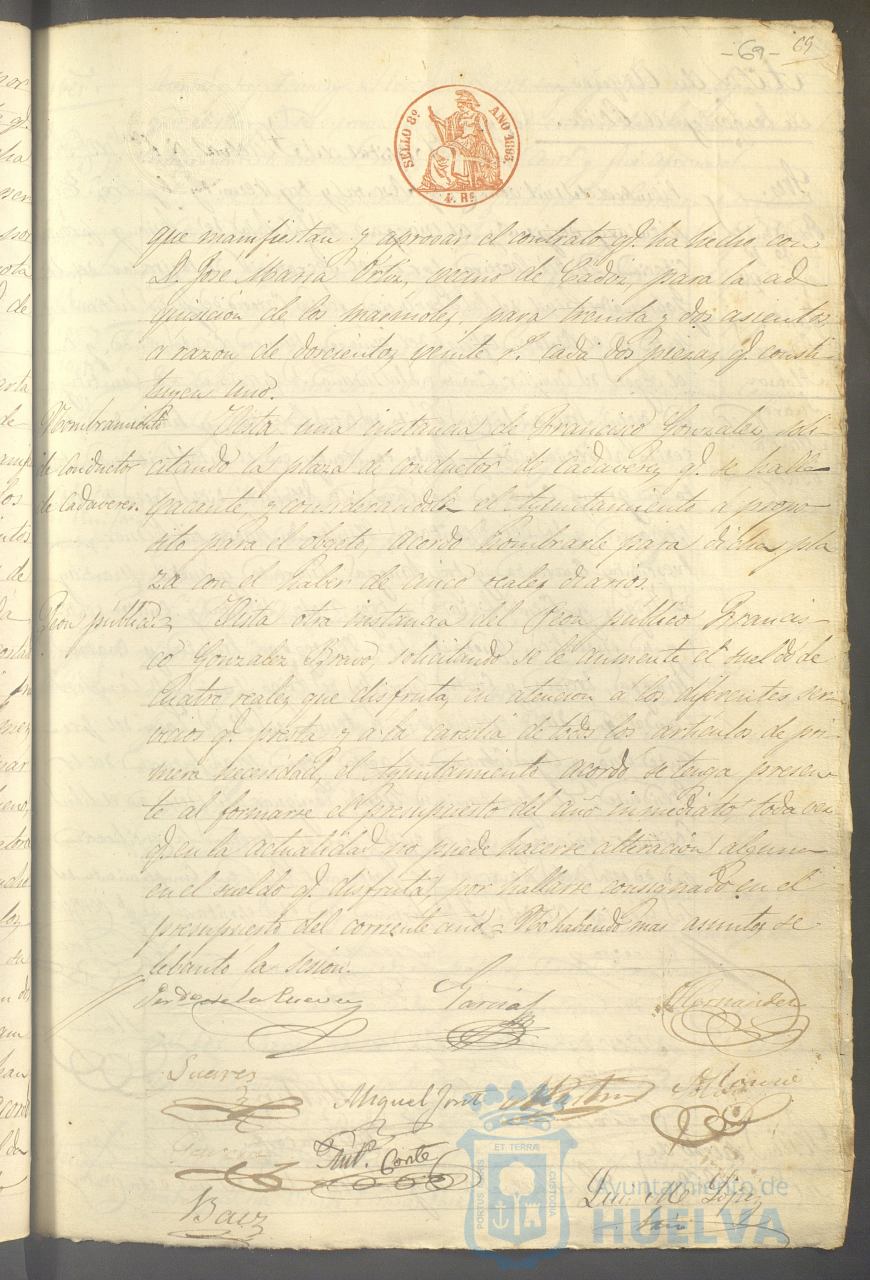 - 69 - 69
SELLO 8º AÑO 1863.
4. Rs.
que manifiestan y aprovar el contrato qe. ha hecho con
D. Jose Maria Ortiz, vecino de Cadiz, para la ad
quisicion de los marmoles, para treinta y dos asientos,
a razon de doscientos veinte rs. cada dos piezas qe. consti-
tuyen uno.
Nombramiento
de conductor
de Cadaveres.
Vista una instancia de Francisco Gonzalez, soli-
citando la plaza de conductor de Cadaveres qe. se halla
vacante, y considerandole el Ayuntamiento a propo-
sito para el objeto, acordo nombrarle para dicha pla
za con el haber de cinco reales diarios.
Peon publico.
Vista otra instancia del Peon público Francis-
co Gonzalez Bravo, solicitando se le aumente el sueldo de
Cuatro reales que disfruta, en atencion a los diferentes ser-
vicios qe. presta y a la carestia de todos los articulos de pri-
mera necesidad, el Ayuntamiento acordó se tenga presen-
te al formarse el presupuesto del año inmediato, toda vez
qe. en la actualidad no puede hacerse alteracion alguna
en el sueldo qe. disfruta, por hallarse consignado en el
presupuesto del corriente año. = No habiendo mas asuntos se
lebantó la sesion.
de la Cueva Garcia Hernandez
Suarez Miguel
Antº. Conte
Baez
PORTUS MARIS ET TERRÆ CUSTODIA
Ayuntamiento de
HUELVA